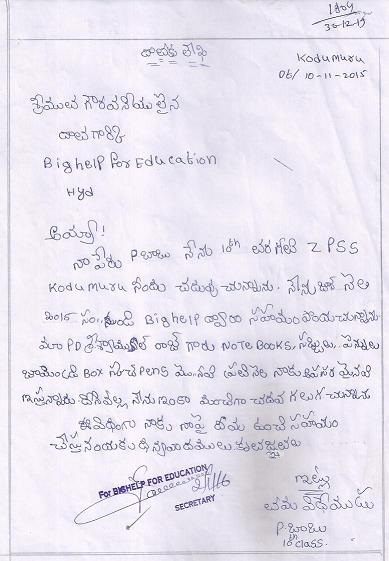 1804
30-12-15
దాతకు లేఖ
Kodumuru
Dt/ 10-11-2015
శ్రీయుత గౌరవనీయులైన
దాత గారికి
Bighelp For Education
Hyd
అయ్యా!
నా పేరు P.బాబు నేను 10th తరగతి ZPSS
Kodumuru నందు చదువుచున్నాను. నేను జూన్ నెల
2015 సం. నుండి Bighelp ద్వారా సహాయం పొందుచున్నాను
మా PD గారు NOTE BOOKS, పెన్నులు
BOX PENS ప్రతి నెల నాకు అవసరమైనవి
ఇస్తున్నారు నేను ఇంకా మంచిగా చదువ గలుగుచున్నాను
ఈ విధంగా నాకు నాపై దయ ఉంచి సహాయం
ధన్యవాదములు కృతజ్ఞతలు
For BIGHELP FOR EDUCATION
SECRETARY
ఇట్లు
తమ విధేయుడు
P.బాబు
10th class.